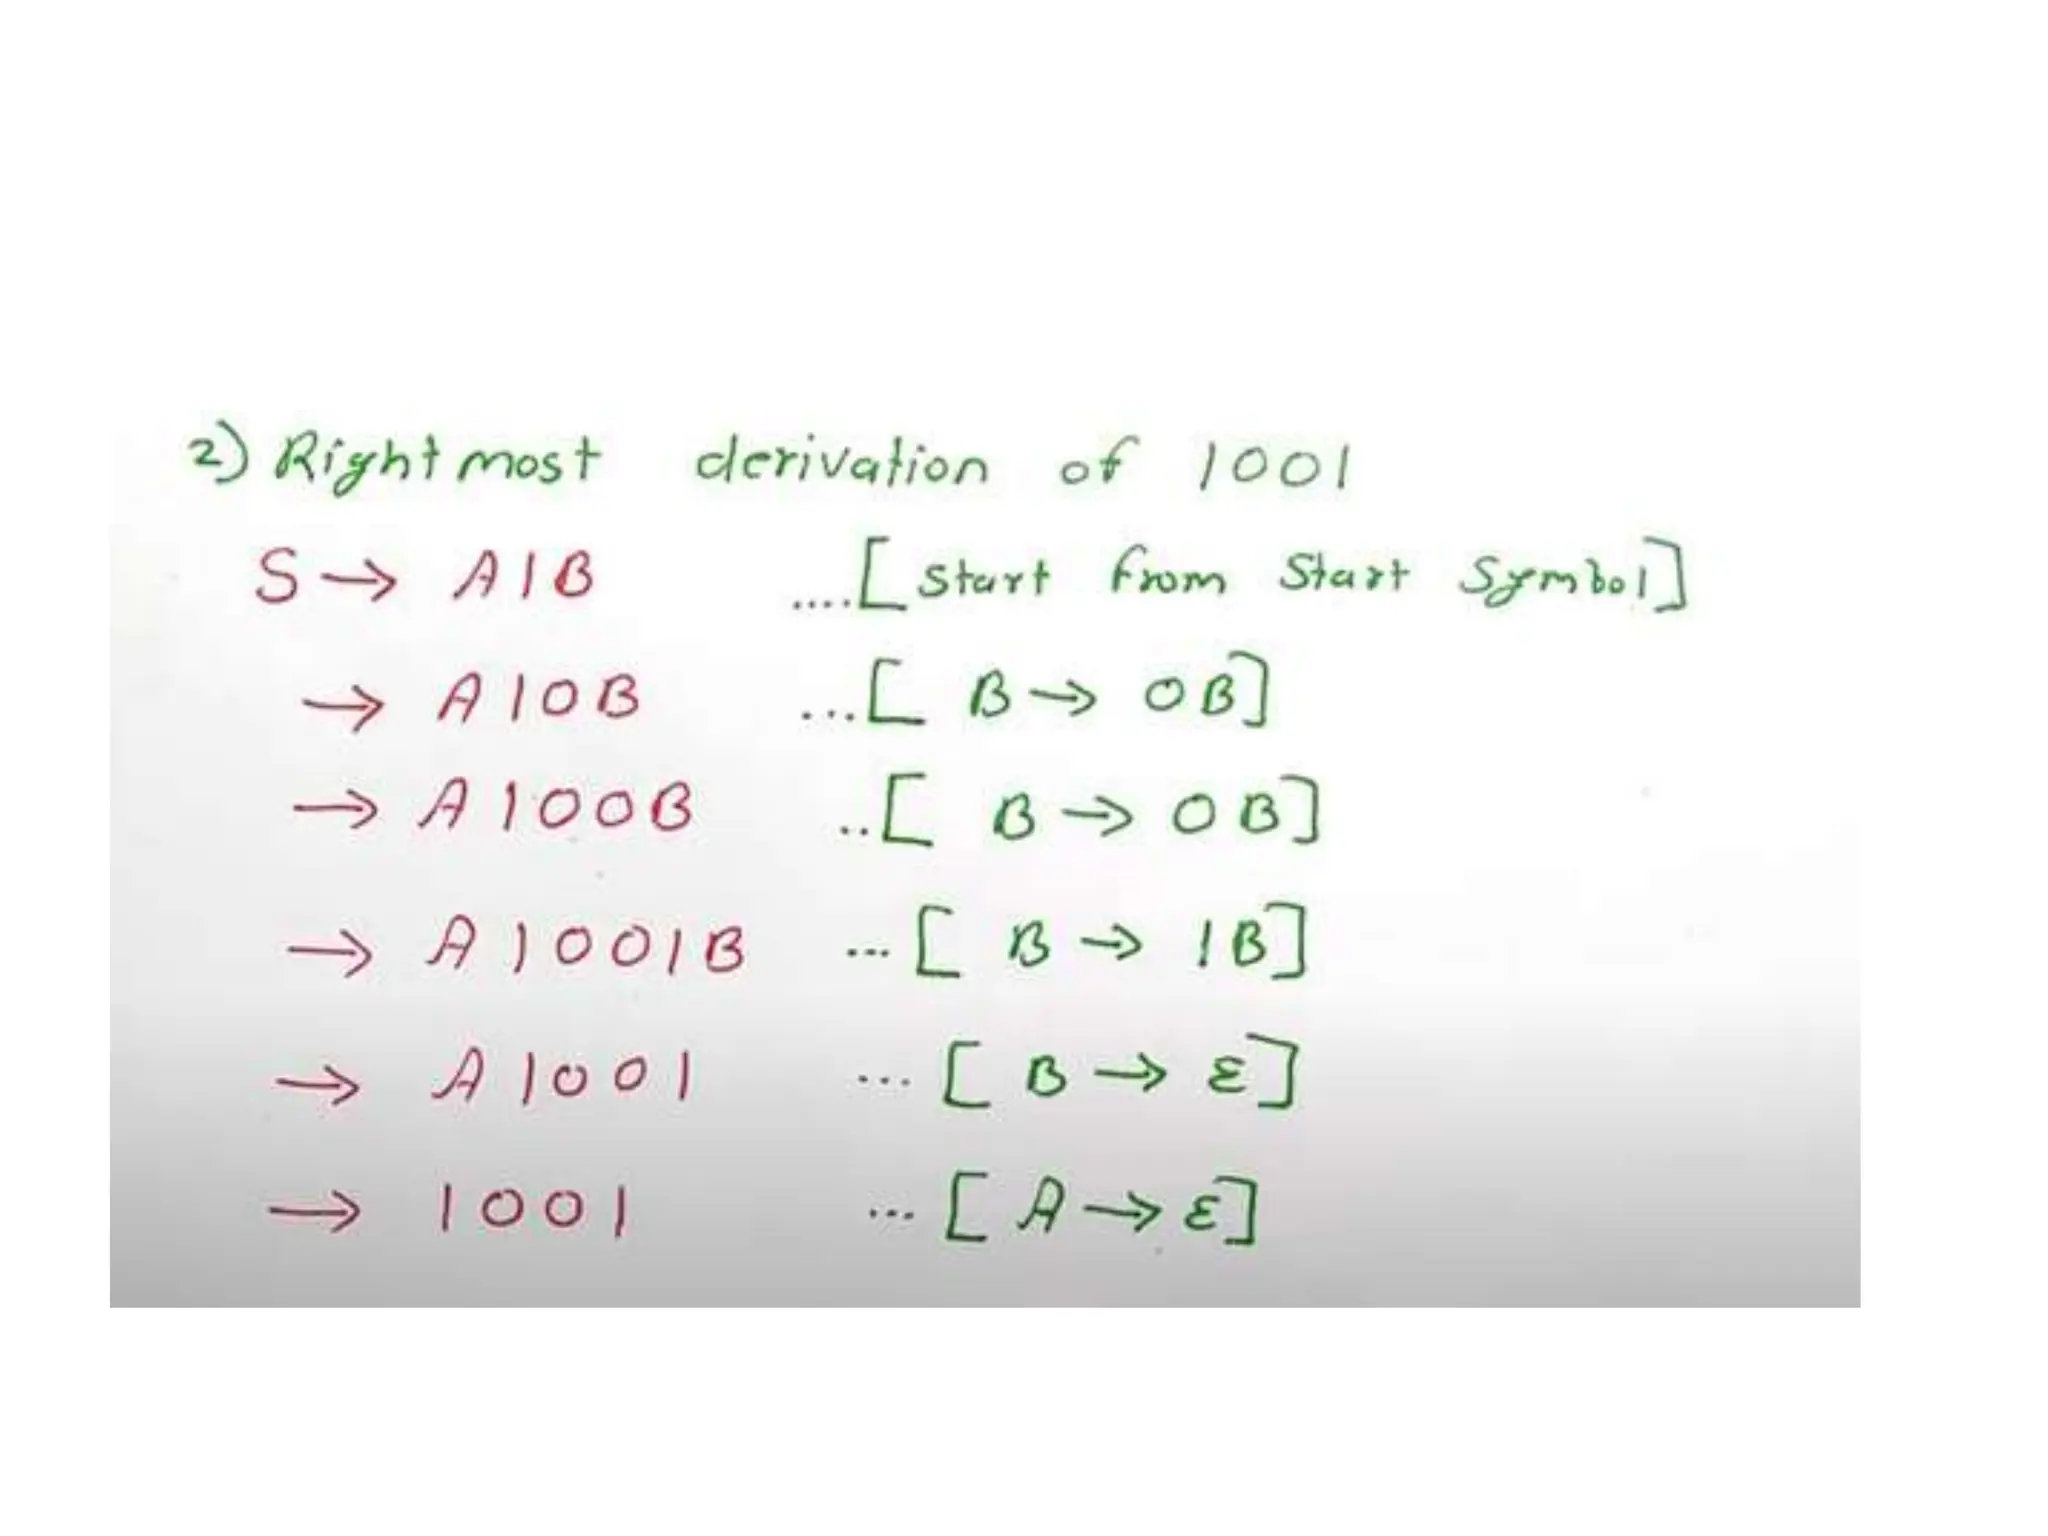 2) Rightmost derivation of 1001
S → A1B ....[Start from Start Symbol]
→ A10B ...[ B → 0B]
→ A100B ..[ B → 0B]
→ A1001B ...[ B → 1B]
→ A1001 ...[ B → ε]
→ 1001 ...[ A → ε]